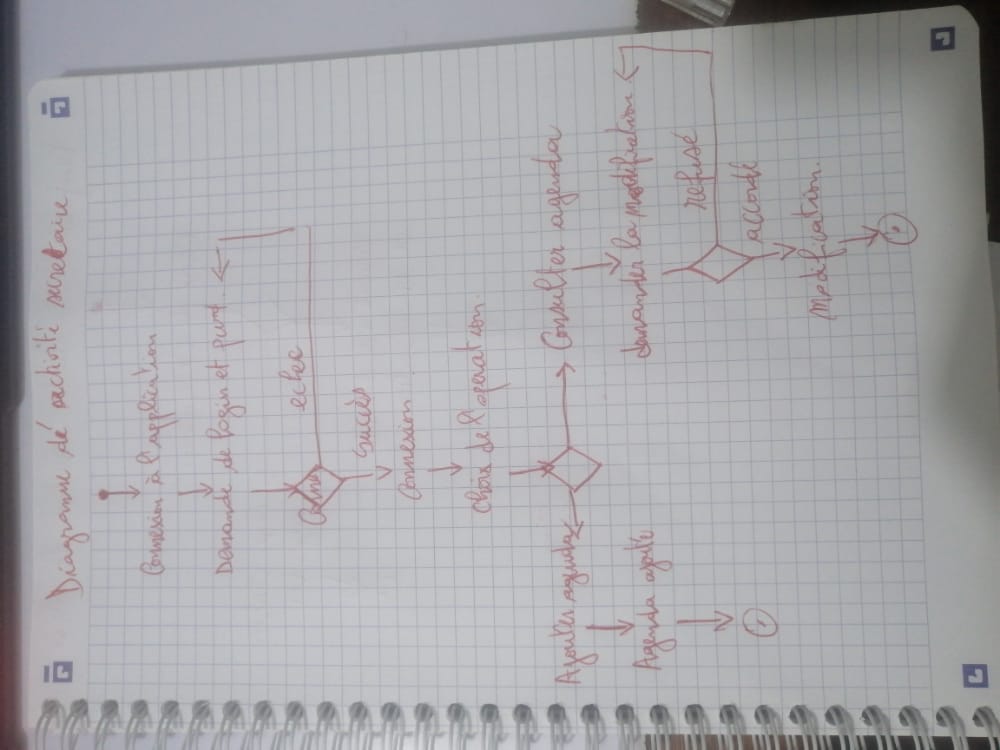 Diagramme dé activité secretaire
Connexion à l'application
Demande de login et
echec
Succès
Connexion
Choix de l'operation.
Ajouter agenda
Consulter agenda
Agenda ajouté
demander la modification
refusé
accordé
modification.